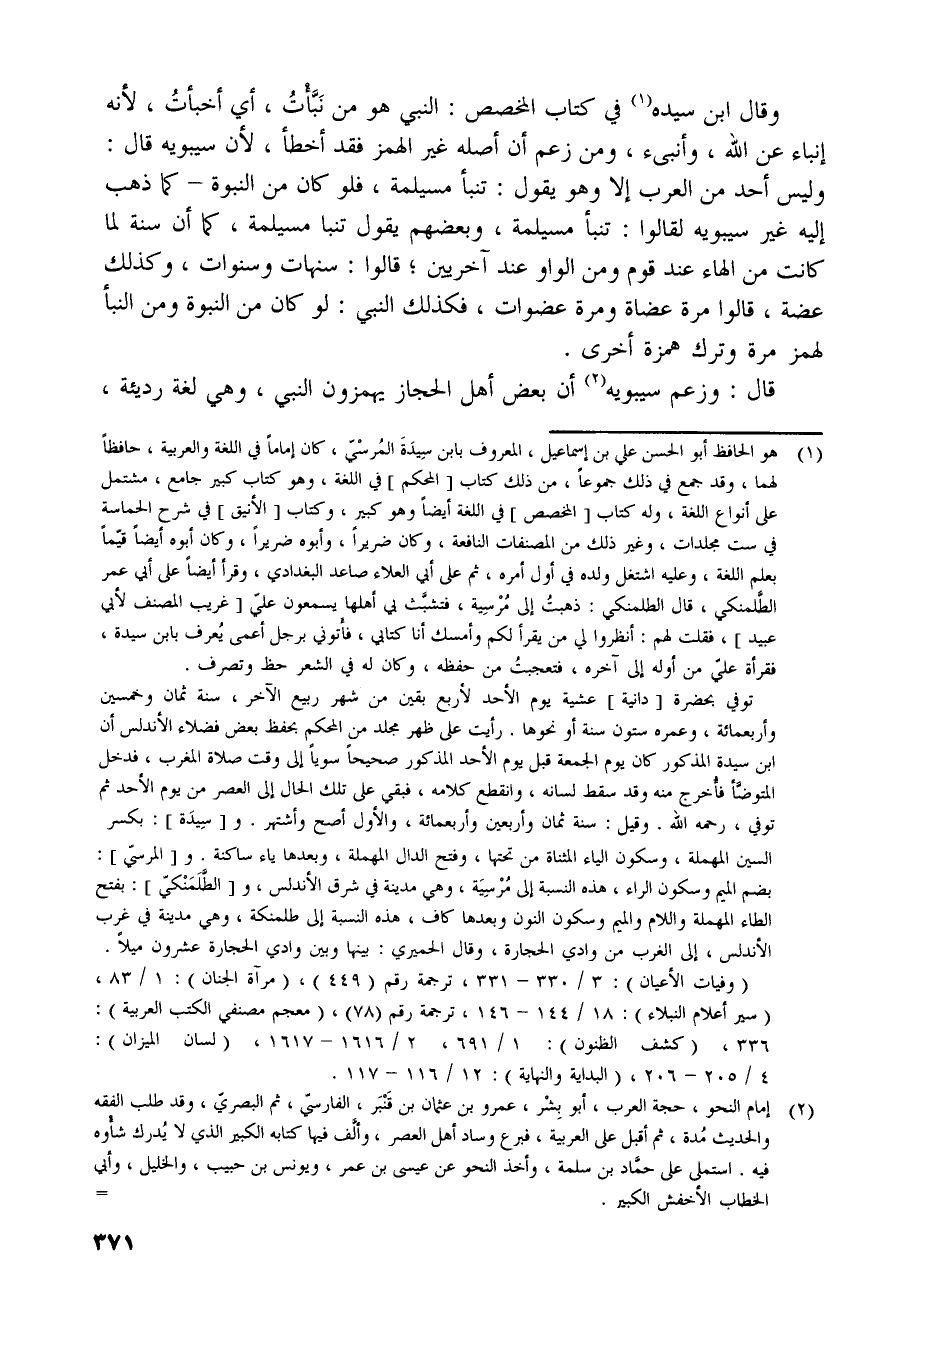 وقال ابن سيده(١) في كتاب المخصص : النبي هو من نَبَّأْتُ ، أي أخبأتُ ، لأنه
إنباء عن الله ، وأنبىء ، ومن زعم أن أصله غير الهمز فقد أخطأ ، لأن سيبويه قال :
وليس أحد من العرب إلا وهو يقول : تنبأ مسيلمة ، فلو كان من النبوة – كما ذهب
إليه غير سيبويه لقالوا : تنبأ مسيلمة ، وبعضهم يقول تنبا مسيلمة ، كما أن سنة لما
كانت من الهاء عند قوم ومن الواو عند آخريين ؛ قالوا : سنهات وسنوات ، وكذلك
عضة ، قالوا مرة عضاة ومرة عضوات ، فكذلك النبي : لو كان من النبوة ومن النبأ
لهمز مرة وترك همزة أخرى .
قال : وزعم سيبويه(٢) أن بعض أهل الحجاز يهمزون النبي ، وهي لغة رديئة ،
(١) هو الحافظ أبو الحسن علي بن إسماعيل ، المعروف بابن سِيدَةَ المُرسْيّ ، كان إماماً في اللغة والعربية ، حافظاً
لهما ، وقد جمع في ذلك جموعاً ، من ذلك كتاب [ المحكم ] في اللغة ، وهو كتاب كبير جامع ، مشتمل
على أنواع اللغة ، وله كتاب [ المخصص ] في اللغة أيضاً وهو كبير ، وكتاب [ الأنيق ] في شرح الحماسة
في ست مجلدات ، وغير ذلك من المصنفات النافعة ، وكان ضريراً ، وأبوه ضريراً ، وكان أبوه أيضاً قيّماً
بعلم اللغة ، وعليه اشتغل ولده في أول أمره ، ثم على أبي العلاء صاعد البغدادي ، وقرأ أيضاً على أبي عمر
الطَّلمنكي ، قال الطلمنكي : ذهبتُ إلى مُرْسِية ، فتشبَّث بي أهلها يسمعون عليّ [ غريب المصنف لأبي
عبيد ] ، فقلت لهم : أنظروا لي من يقرأ لكم وأمسك أنا كتابي ، فأتوني برجل أعمى يُعرف بابن سيدة ،
فقرأة عليّ من أوله إلى آخره ، فتعجبتُ من حفظه ، وكان له في الشعر حظ وتصرف .
توفي بحضرة [ دانية ] عشية يوم الأحد لأربع بقين من شهر ربيع الآخر ، سنة ثمان وخمسين
وأربعمائة ، وعمره ستون سنة أو نحوها . رأيت على ظهر مجلد من المحكم بحفظ بعض فضلاء الأندلس أن
ابن سيدة المذكور كان يوم الجمعة قبل يوم الأحد المذكور صحيحاً سوياً إلى وقت صلاة المغرب ، فدخل
المتوضَّأ فأُخرج منه وقد سقط لسانه ، وانقطع كلامه ، فبقي على تلك الحال إلى العصر من يوم الأحد ثم
توفي ، رحمه الله . وقيل : سنة ثمان وأربعين وأربعمائة ، والأول أصح وأشتهر . و [ سِيدَة ] : بكسر
السين المهملة ، وسكون الياء المثناة من تحتها ، وفتح الدال المهملة ، وبعدها ياء ساكنة . و [ المرسيّ ] :
بضم الميم وسكون الراء ، هذه النسبة إلى مُرْسِيَة ، وهي مدينة في شرق الأندلس ، و [ الطَّلَمَنْكيّ ] : بفتح
الطاء المهملة واللام والميم وسكون النون وبعدها كاف ، هذه النسبة إلى طلمنكة ، وهي مدينة في غرب
الأندلس ، إلى الغرب من وادي الحجارة ، وقال الحميري : بينها وبين وادي الحجارة عشرون ميلاً .
( وفيات الأعيان ) : ٣ / ٣٣٠ – ٣٣١ ، ترجمة رقم ( ٤٤٩ ) ، ( مرآة الجنان ) : ١ / ٨٣ ،
( سير أعلام النبلاء ) : ١٨ / ١٤٤ – ١٤٦ ، ترجمة رقم (٧٨) ، ( معجم مصنفي الكتب العربية ) :
٣٣٦ ، ( كشف الظنون ) : ١ / ٦٩١ ، ٢ / ١٦١٦ – ١٦١٧ ، ( لسان الميزان ) :
٤ / ٢٠٥ – ٢٠٦ ، ( البداية والنهاية ) : ١٢ / ١١٦ – ١١٧ .
(٢) إمام النحو ، حجة العرب ، أبو بِشْر ، عمرو بن عثمان بن قَنْبَر ، الفارسيّ ، ثم البصريّ ، وقد طلب الفقه
والحديث مُدة ، ثم أقبل على العربية ، فبرع وساد أهل العصر ، وألَّف فيها كتابه الكبير الذي لا يُدرك شأوه
فيه . استملى على حمَّاد بن سلمة ، وأخذ النحو عن عيسى بن عمر ، ويونس بن حبيب ، والخليل ، وأبي
الخطاب الأخفش الكبير . =
٣٧١